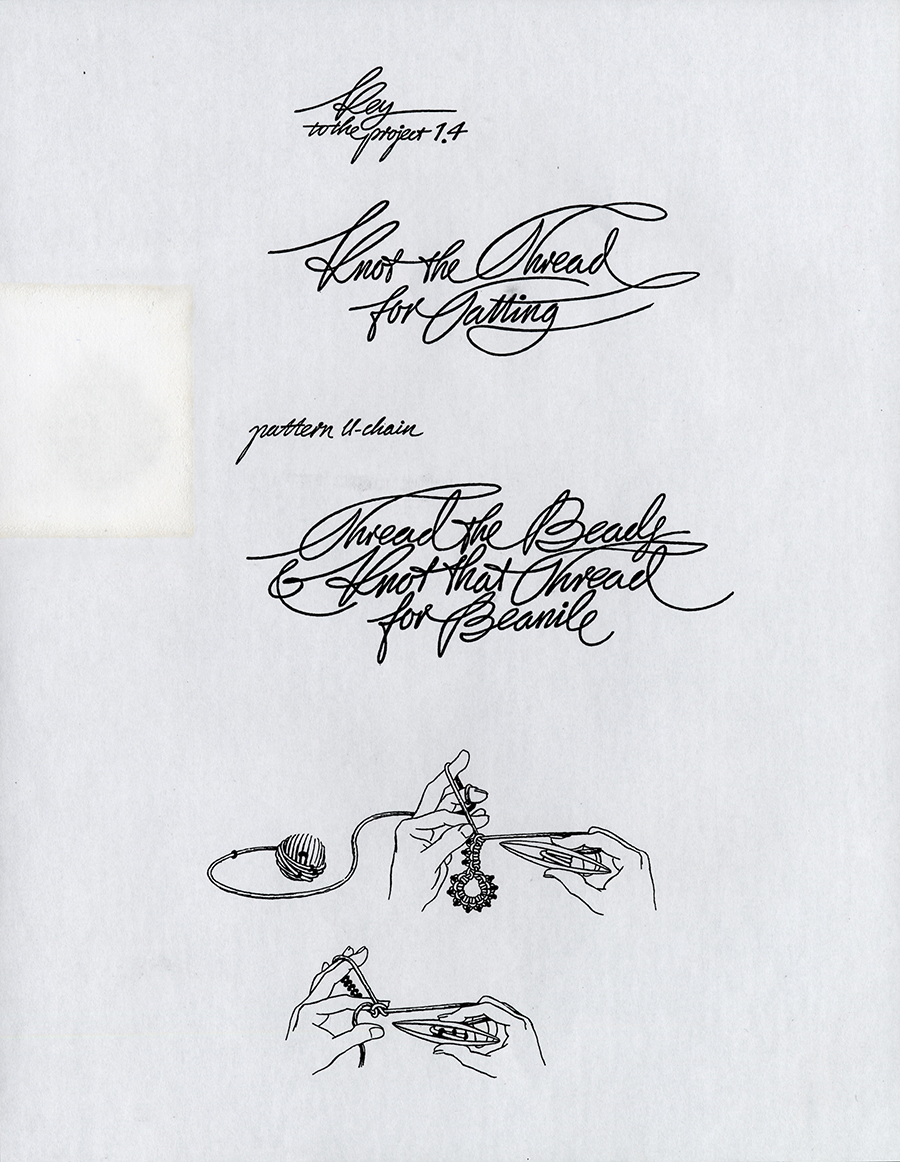 Key
to the project 1.4
Knot the Thread
for Tatting
pattern U-chain
Thread the Beads
& Knot that Thread
for Beanile